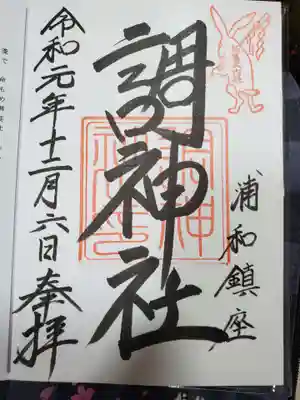 浦和鎮座
調神社
令和元年十二月六日奉拝